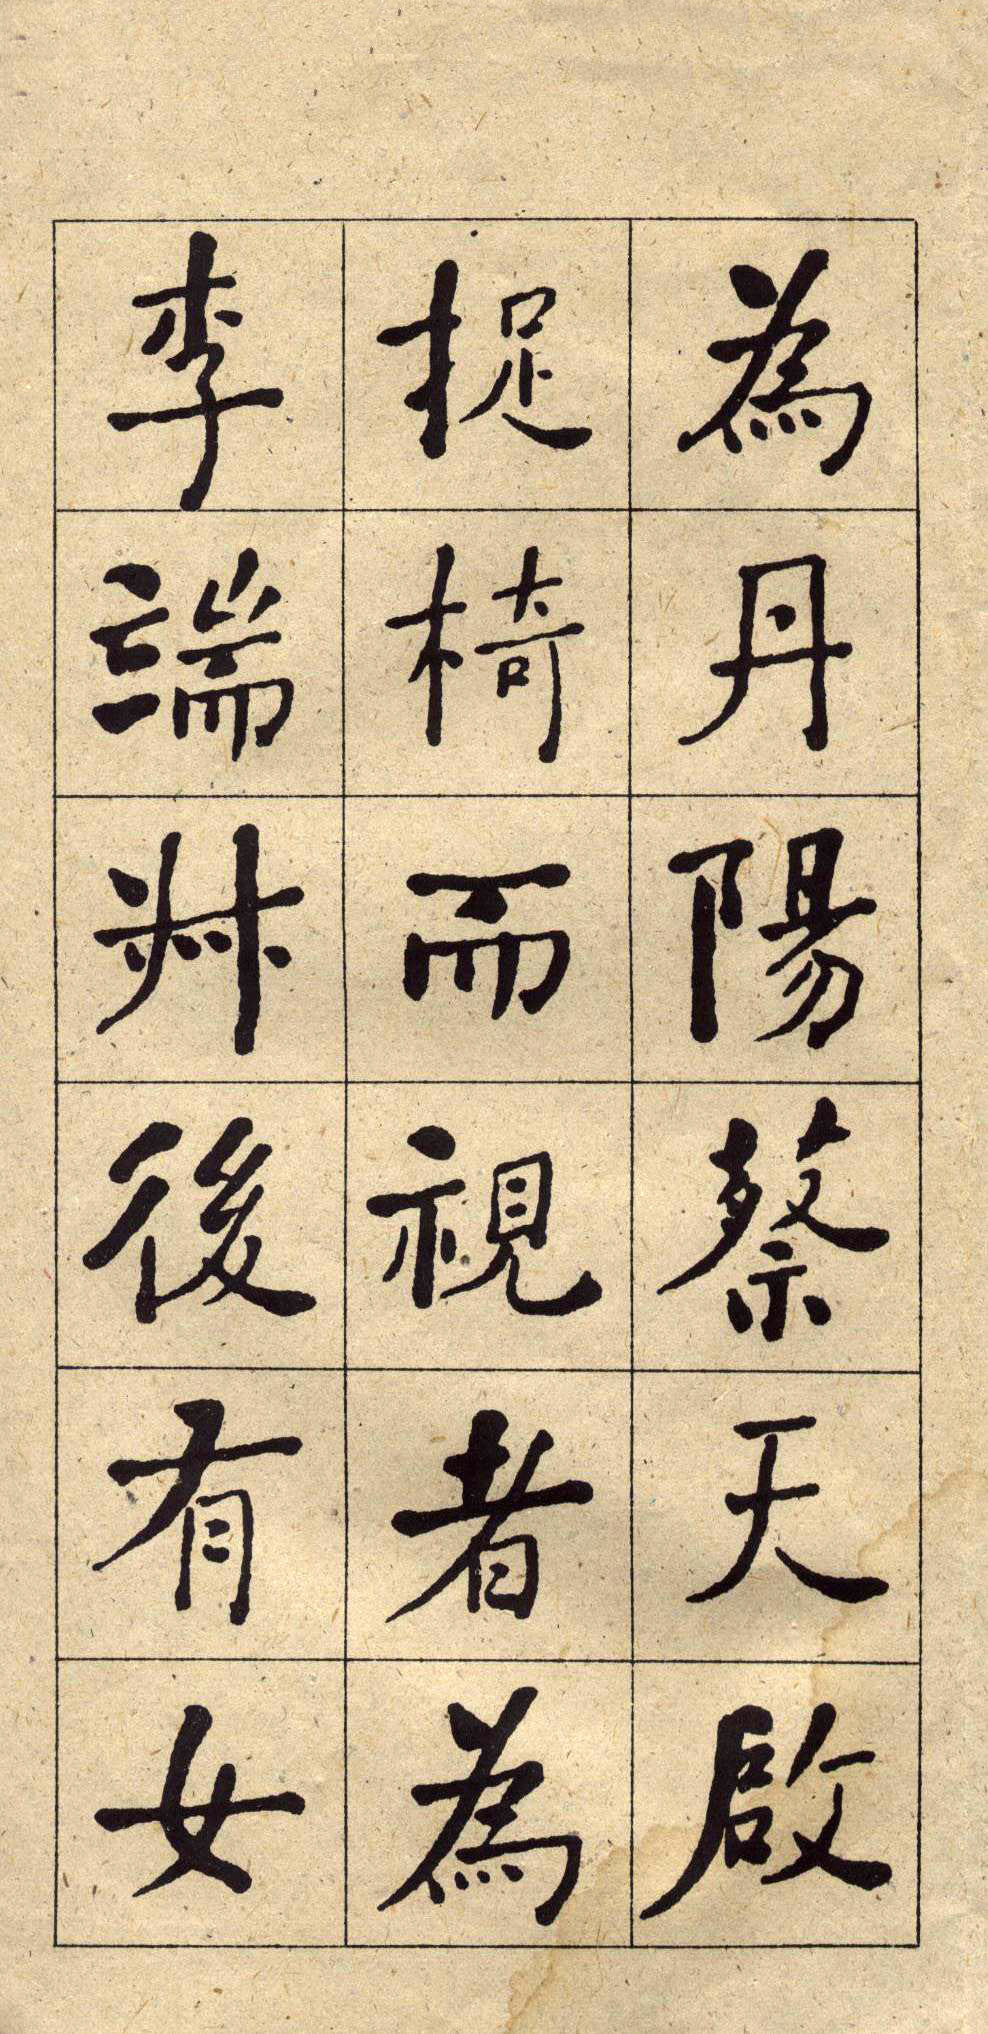 為丹陽蔡天啟
捉椅而視者為
李端叔後有女